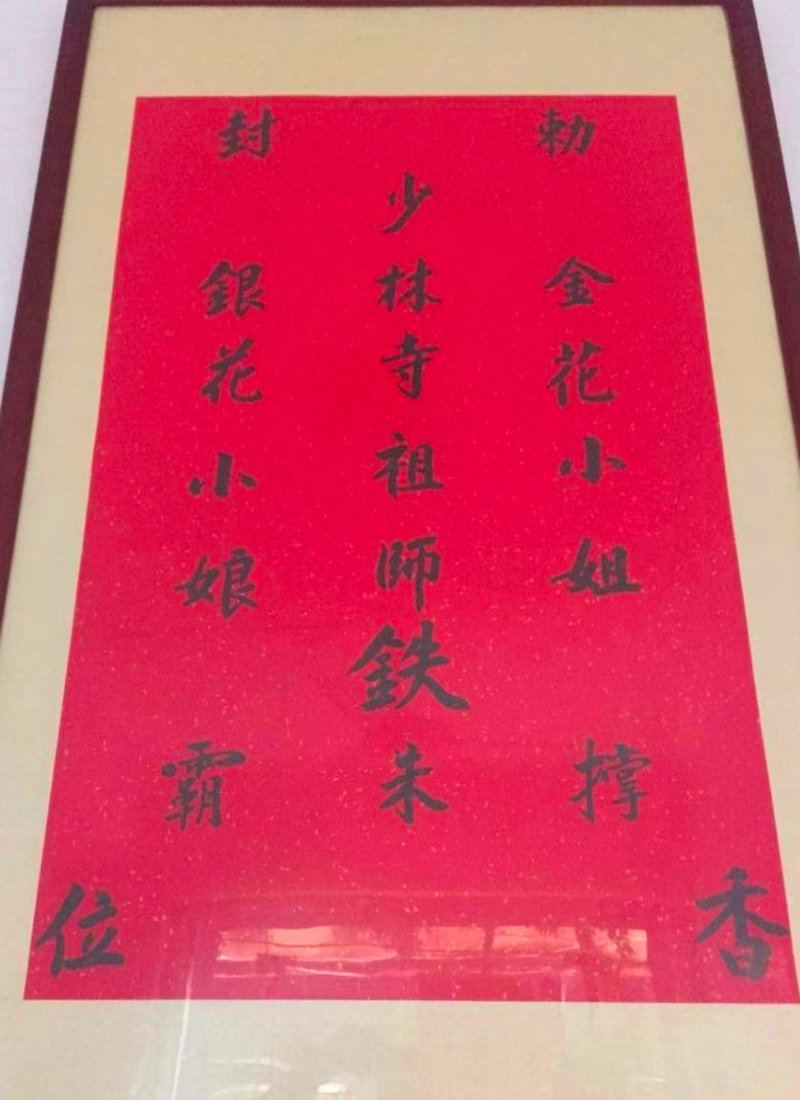 勅封
金花小姐
少林寺祖師鉄朱
銀花小娘
撐霸
香位